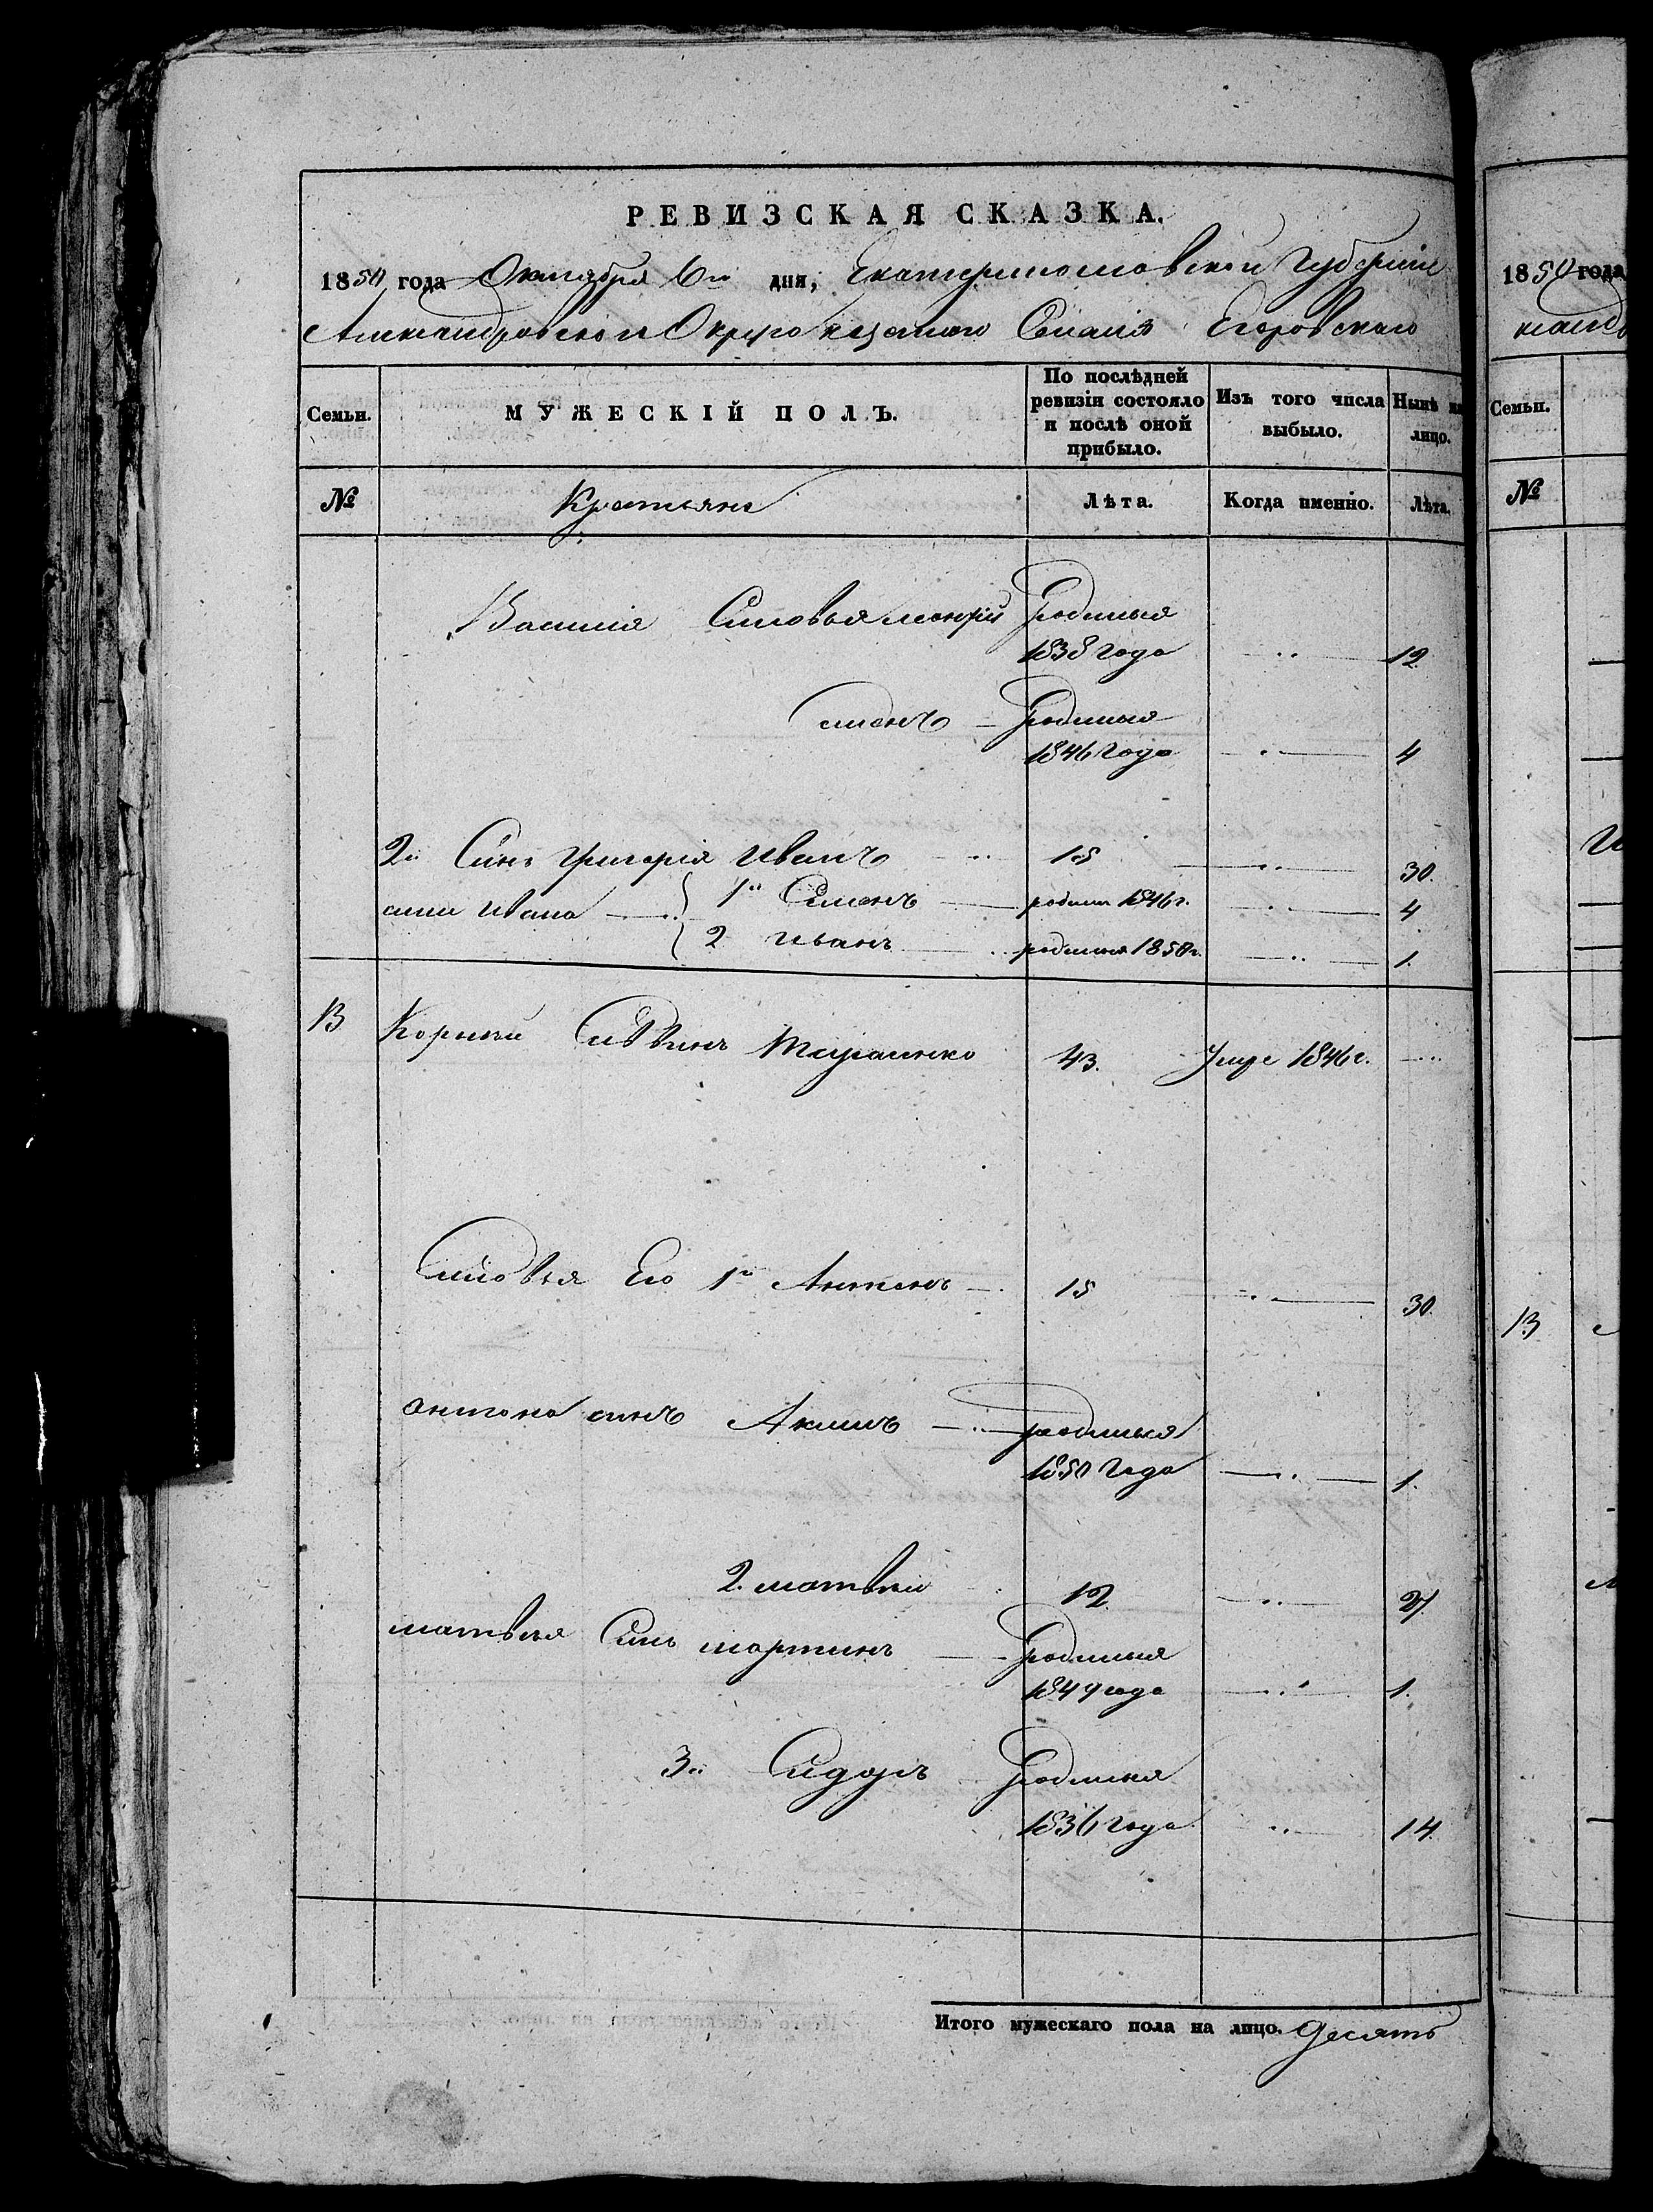 РЕВИЗСКАЯ СКАЗКА.
1850 года Октября 6го дня, Екатеринославской Губерніи
Александровской Округи казеннаго Селенія Егоровскаго
Семьи. МУЖЕСКІЙ ПОЛЪ. По послѣдней ревизіи состояло и послѣ оной прибыло. Изъ того числа выбыло. Нынѣ на лицо.
№ Крестьяне Лѣта. Когда именно. Лѣта.
Василія Сыновья родился
1838 года 12.
родился
1846 года 4
2й Сынъ григорія Иванъ 15 30.
сыни Ивана 1й Семенъ родился 1846 г. 4
2 Иванъ родился 1850 г. 1.
13 Корней Саввинъ 43. Умре 1846 г.
Сыновья Его 1й Антонъ 15 30.
антона сынъ Акимъ родился
1850 года 1.
2. матвѣй 12 27.
матвѣя Сынъ мартинъ родился
1849 года 1.
3й Сидоръ родился
1836 года 14.
Итого мужескаго пола на лицо. Десять
1850 года
Семьи.
№
13